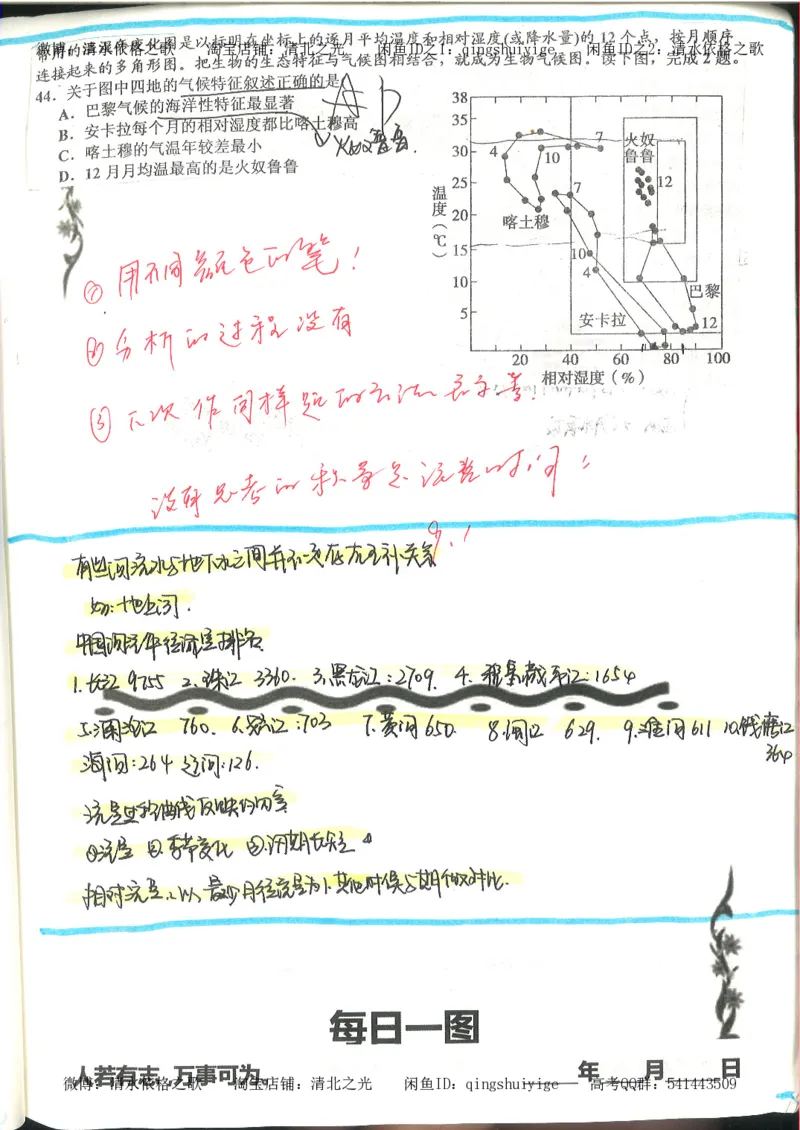 常用的温湿度变化图是以标明在坐标上的逐月平均温度和相对湿度(或降水量)的12个点，按月顺序
微博：清水依格之歌 淘宝店铺：清北之光 闲鱼ID之1：qingshuiyige 闲鱼ID之2：清水依格之歌
连接起来的多角形图。把生物的生态特征与气候图相结合，就成为生物气候图。读下图，完成2题。
44．关于图中四地的气候特征叙述正确的是
A．巴黎气候的海洋性特征最显著
B．安卡拉每个月的相对湿度都比喀土穆高
C．喀土穆的气温年较差最小
D．12月月均温最高的是火奴鲁鲁
A D
火奴鲁鲁.
温度（℃）
38
35
30
25
20
15
10
5
4 10 7 火奴鲁鲁 12
喀土穆 7
10
4
巴黎
安卡拉 12
20 40 60 80 100
相对湿度（%）
① 用不同颜色的笔!
② 分析的过程没有
③ 下次作同样题的方法
没有思考的积累是浪费时间!
有些河流水与地下水之间并不一定存在互补关系
如:地上河.
中国河流年径流量排名
1.长江 9755 2.珠江 3360. 3.黑龙江:2709. 4.雅鲁藏布江:1654
5.澜沧江 760. 6.怒江:703 7.黄河 650. 8.闽江 629. 9.淮河 611 10.钱塘江
364
海河:264 辽河:126.
流量过程曲线反映的内容
①流量 ②季节变化 ③汛期长短
相对流量:以最少月径流量为1.其他时候与期做对比.
每日一图
人若有志，万事可为。 年 月 日
微博：清水依格之歌 淘宝店铺：清北之光 闲鱼ID：qingshuiyige 高考QQ群：541443509